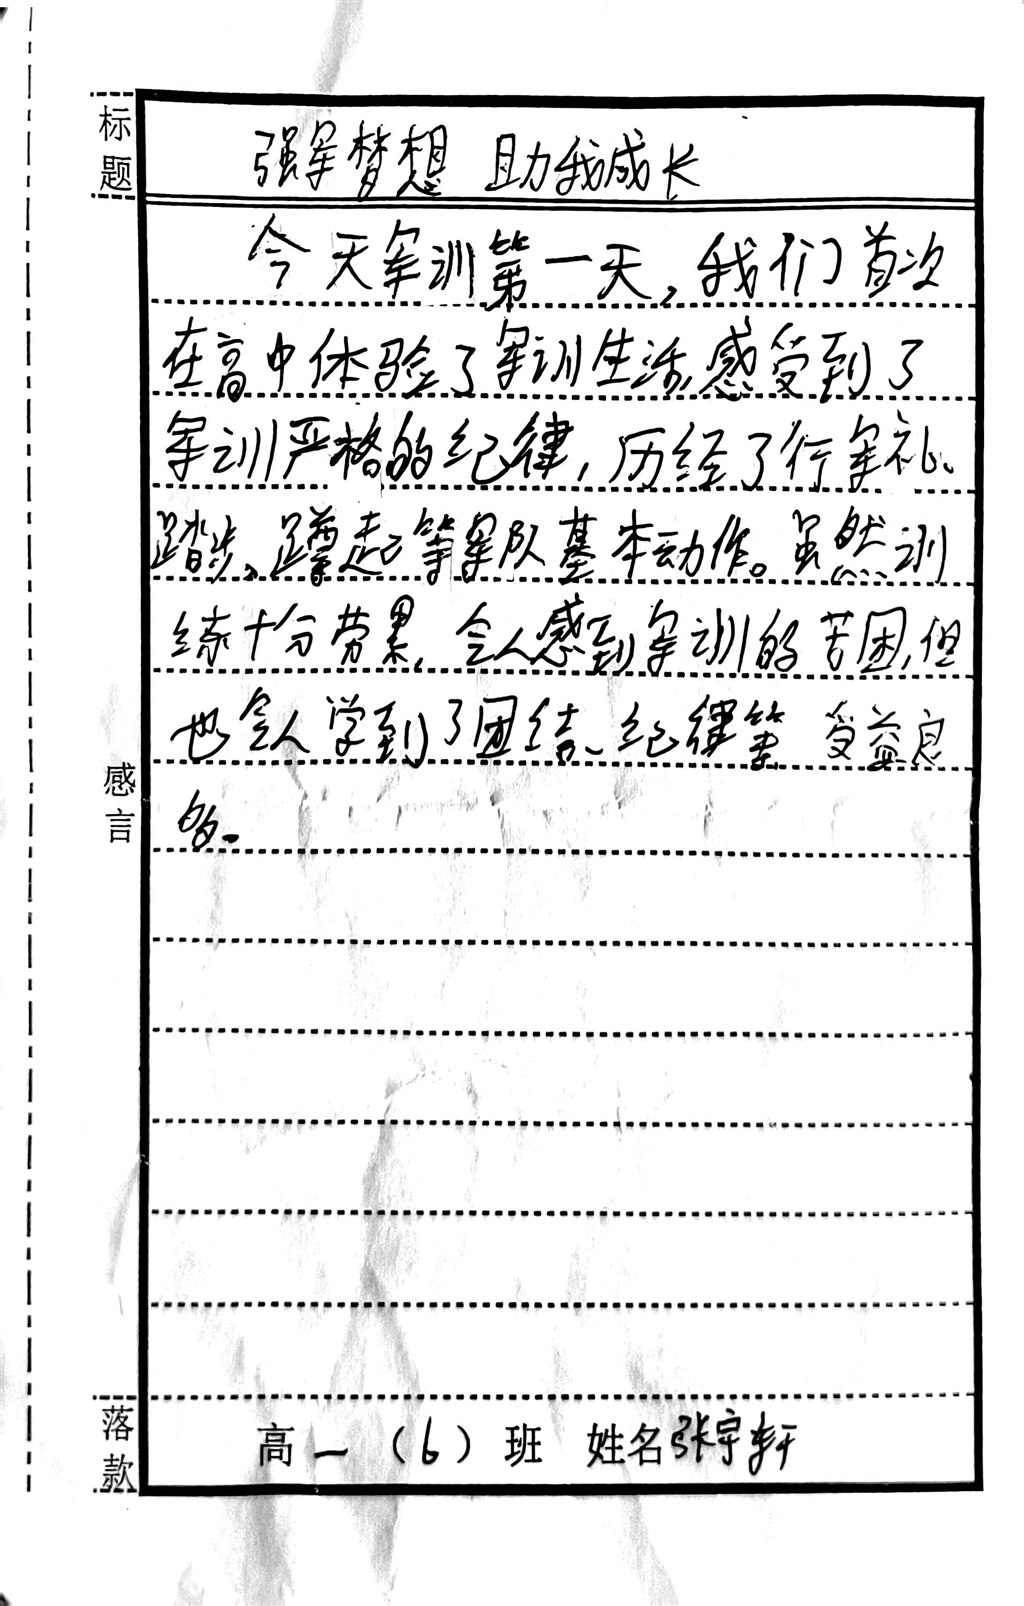 标题
强军梦想 助我成长
今天军训第一天,我们首次
在高中体验了军训生活,感受到了
军训严格的纪律,历经了行军礼、
踏步、蹲起等军队基本动作。虽然训
练十分劳累,令人感到军训的苦困,但
也令人学到了团结、纪律等 受益良
多。
感言
落款
高一(6)班 姓名张宇轩